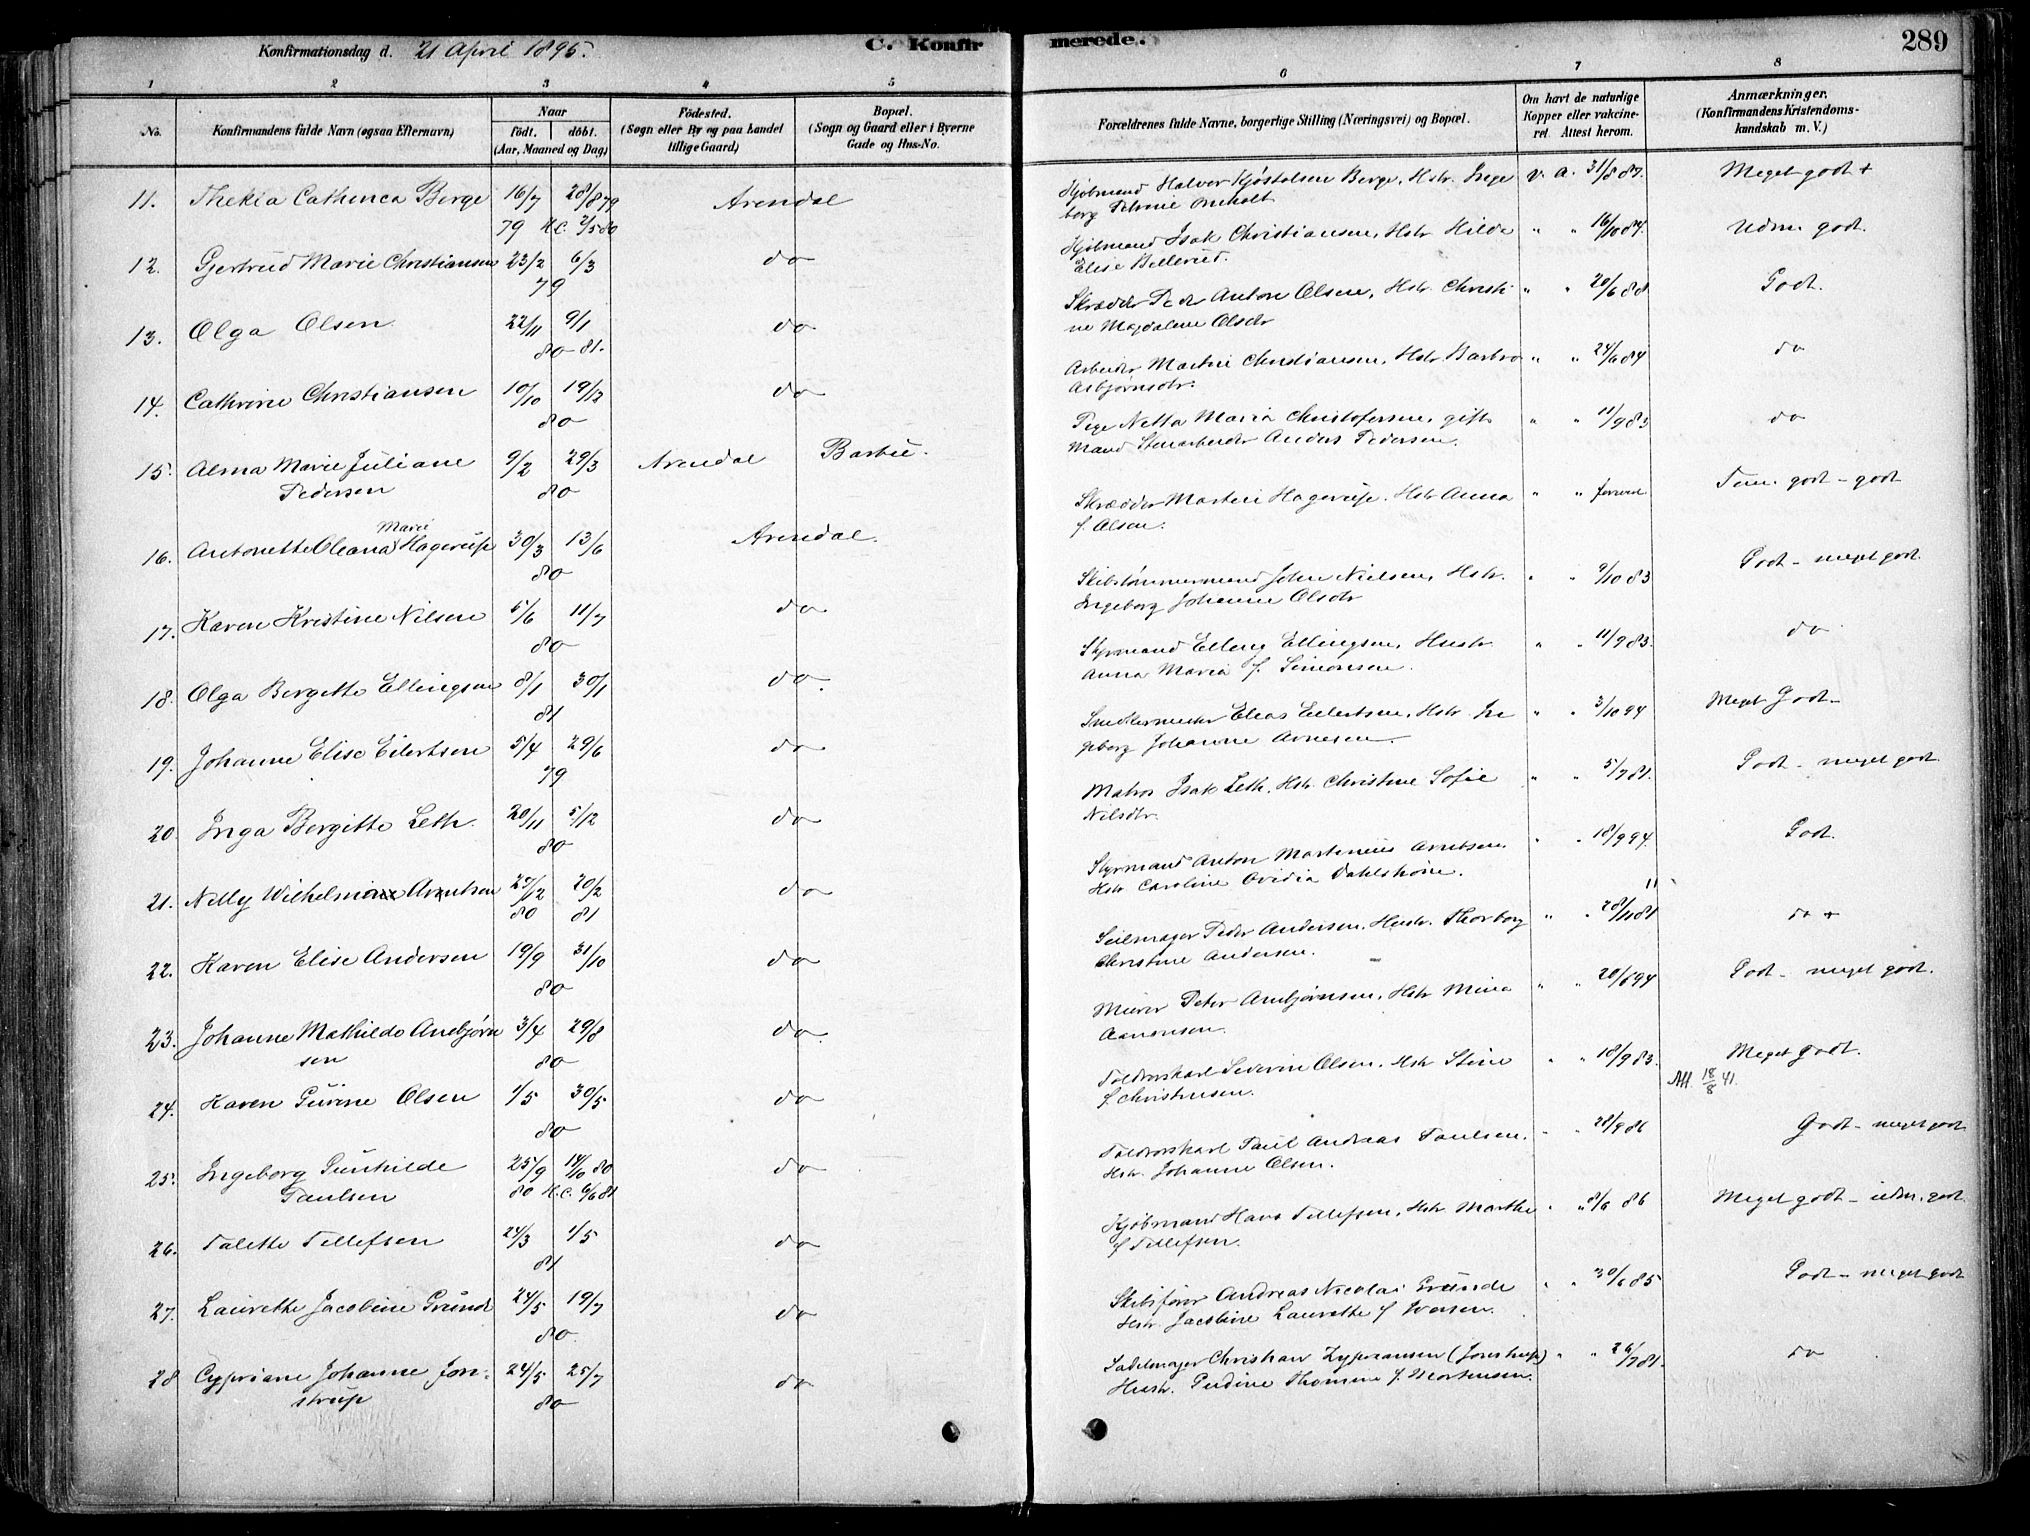 Konfirmationsdag d. 21 April 1895.
C. Konfirmerede.
289
1 2 3 4 5 6 7 8
No.
Konfirmandens fulde Navn (ogsaa Efternavn)
Naar
født. døbt.
(Aar, Maaned og Dag)
Fødested.
(Sogn eller By og paa Landet
tillige Gaard)
Bopæl.
(Sogn og Gaard eller i Byerne
Gade og Hus-No.
Forældrenes fulde Navne, borgerlige Stilling (Næringsvei) og Bopæl.
Om havt de naturlige
Kopper eller vakcine-
ret. Attest herom.
Anmærkninger.
(Konfirmandens Kristendoms-
kundskab m. V.)
11. Thekla Cathinca Berge 16/7 28/8 79 Arendal Kjøbmand Halvor Kjøstolsen Berge, Hstr. Inge v. a. 31/8 87. Meget godt +
79 H.C. 2/5 80 borg Petrine Omholt
12. Gjertrud Marie Christiansen 23/2 6/3 do Kjøbmand Isak Christiansen, Hstr Hilda " " 16/10 84. Udm. godt.
79 Elise Bellerud.
13. Olga Olsen 22/11 9/1 do Skrædder Peder Anton Olsen, Hstr. Christi " " 20/6 88 Godt.
80 81. ne Magdalene Olsdtr
14. Cathrine Christiansen 10/10 19/12 do Arbeider Martin Christiansen, Hstr Barbro " " 24/6 84 do
80 Asbjørnsdtr.
15. Alma Marie Juliane 9/2 29/3 Arendal Barbu. Pige Netta Maria Christofersen, gift " " 11/9 83 do
Pedersen 80 Mand Stenarbeider Anders Pedersen.
16. Antonette Oleana Marie Hagerup 30/3 13/6 Arendal. Skrædder Martin Hagerup. Hstr Anna " " forevist Tem. godt - godt
80 f. Olsen.
17. Karen Kristine Nilsen 5/6 11/7 do Skibstømmermand John Nielsen, Hstr. " " 9/10 83 Godt - meget godt.
80 Ingeborg Johanne Olsdtr
18. Olga Bergitte Ellingsen 8/1 30/1 do. Styrmand Elling Ellingsen, Hustr. " " 11/9 83. do
81 Anna Maria f. Simonsen.
19. Johanne Elise Eilertsen 5/4 29/6 do Snedkermester Elias Eilertsen, Hstr. In " " 3/10 94 Meget Godt -
79 geborg Johanne Arnesen.
20. Inga Bergitte Leth. 20/11 5/12 do Matros Isak Leth. Hstr. Christine Sofie " " 5/7 81. Godt - meget godt.
80 Nilsdtr.
21. Nelly Wilhelmine Arntsen 20/2 do Styrmand Anton Martinius Arntsen. " " 18/9 94. Godt.
80 81 Hstr Caroline Ovidia
22. Karen Elise Andersen 19/9 31/10 do Seilmager Peder Andersen, Hustr. Thorborg " " 28/11 81 do +
80 Christine Andersen.
23. Johanne Mathilde Anebjørn 3/4 29/8 do. Murer Peter Anebjørnsen, Hstr Mina " " 20/6 94 Godt - meget godt.
sen 80 Aanonsen.
24. Karen Gurine Olsen 1/5 30/5 do Toldrorskarl Severin Olsen, Hstr Stine " " 18/9 83. Meget godt.
80 f. Christensen. Att. 18/8 41.
25. Ingeborg Gunhilde 25/9 14/10 80 do Toldrorskarl Paul Andreas Paulsen. " " 28/9 86 Godt - meget godt
Paulsen 80 H.C. 6/6 81 Hstr. Johanne Olsen.
26. Talette Tellefsen 24/3 1/5 do Kjøbmand Hans Tellefsen, Hstr Marthe " " 8/6 86 Meget godt - udm. godt.
81 f Tellefsen.
27. Laurette Jacobine Grunde 24/5 19/7 do Skibsfører Andreas Nicolai Grunde " " 30/6 85 Godt - meget godt
80. Hstr. Jacobine Laurette f Iversen.
28 Cypriane Johanne Jon- 24/5 25/7 do Sadelmager Christian Zypriansen (Jonstrup) " " 26/7 81. do
strup 80 Hustr. Gudine Thomine f. Mortensen.